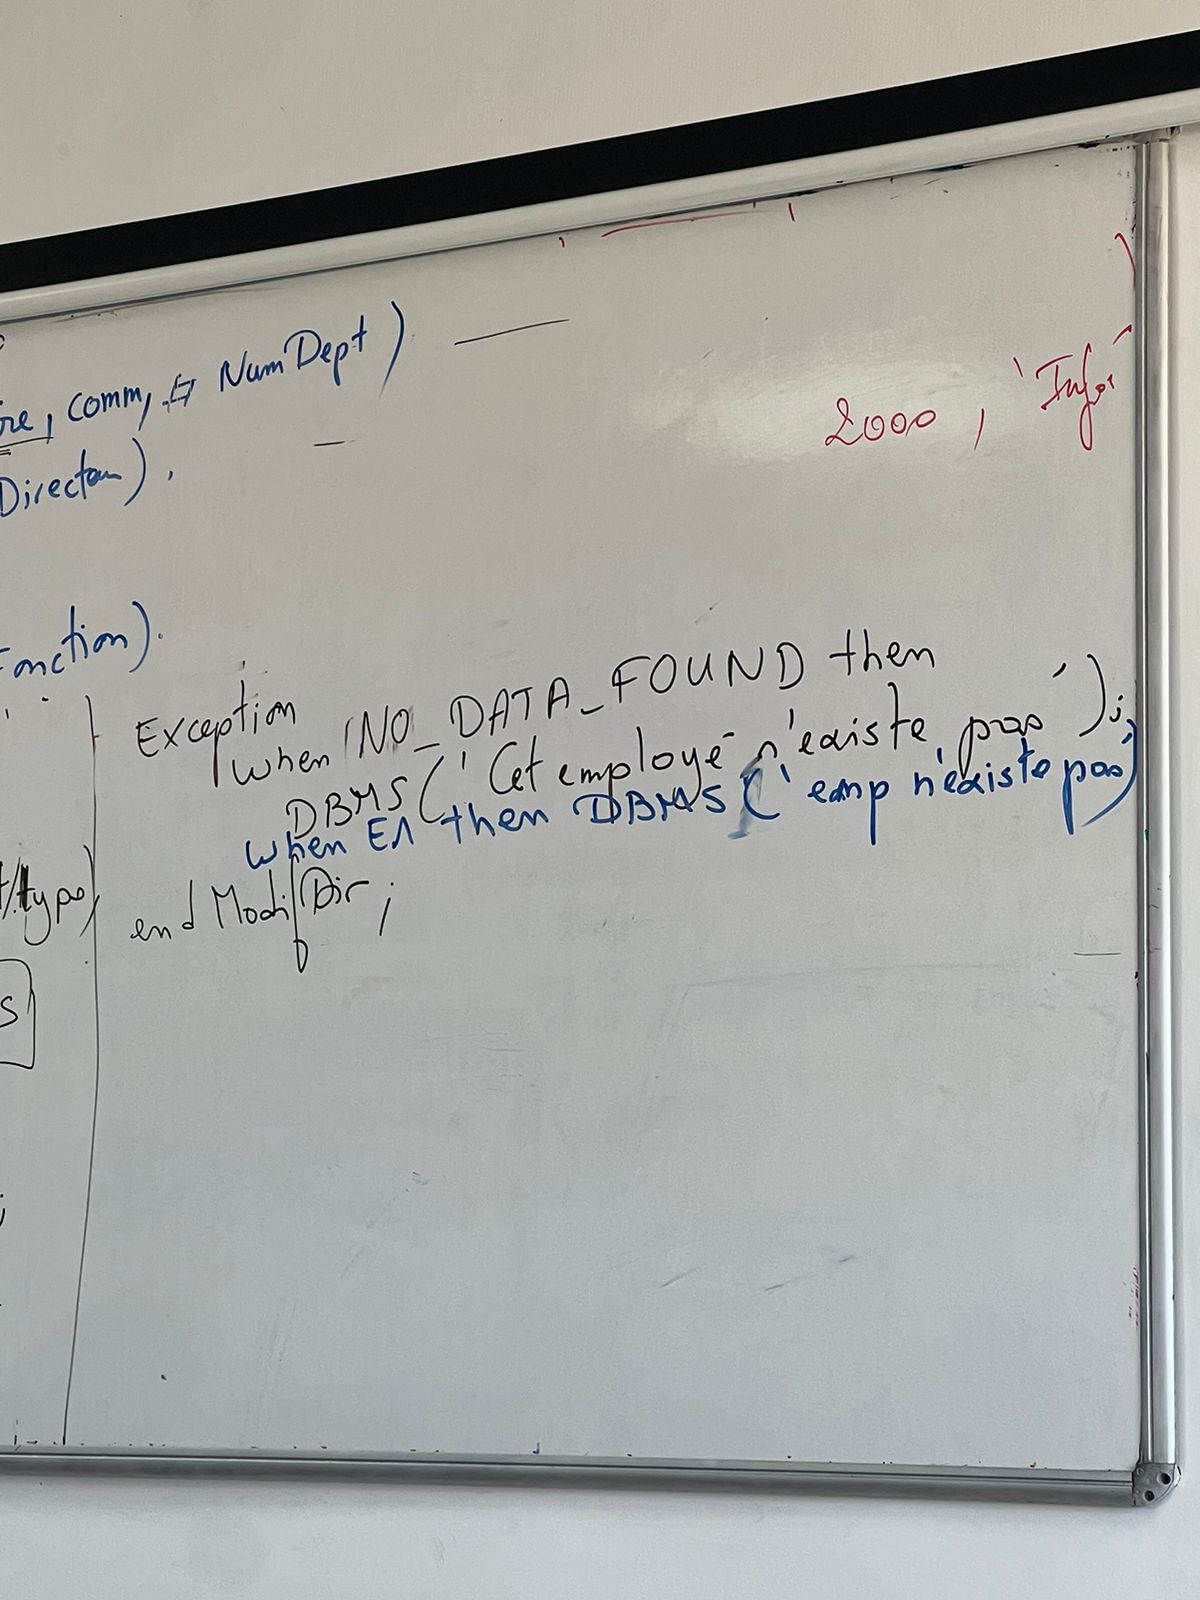 re, comm, # NumDept)
Directeur).
2000, 'Info'
Fonction).
Exception
when NO_DATA_FOUND then
DBMS('Cet employé n'existe pas');
when E1 then DBMS('emp n'existe pas')
%type)
end ModifDir;
S
;